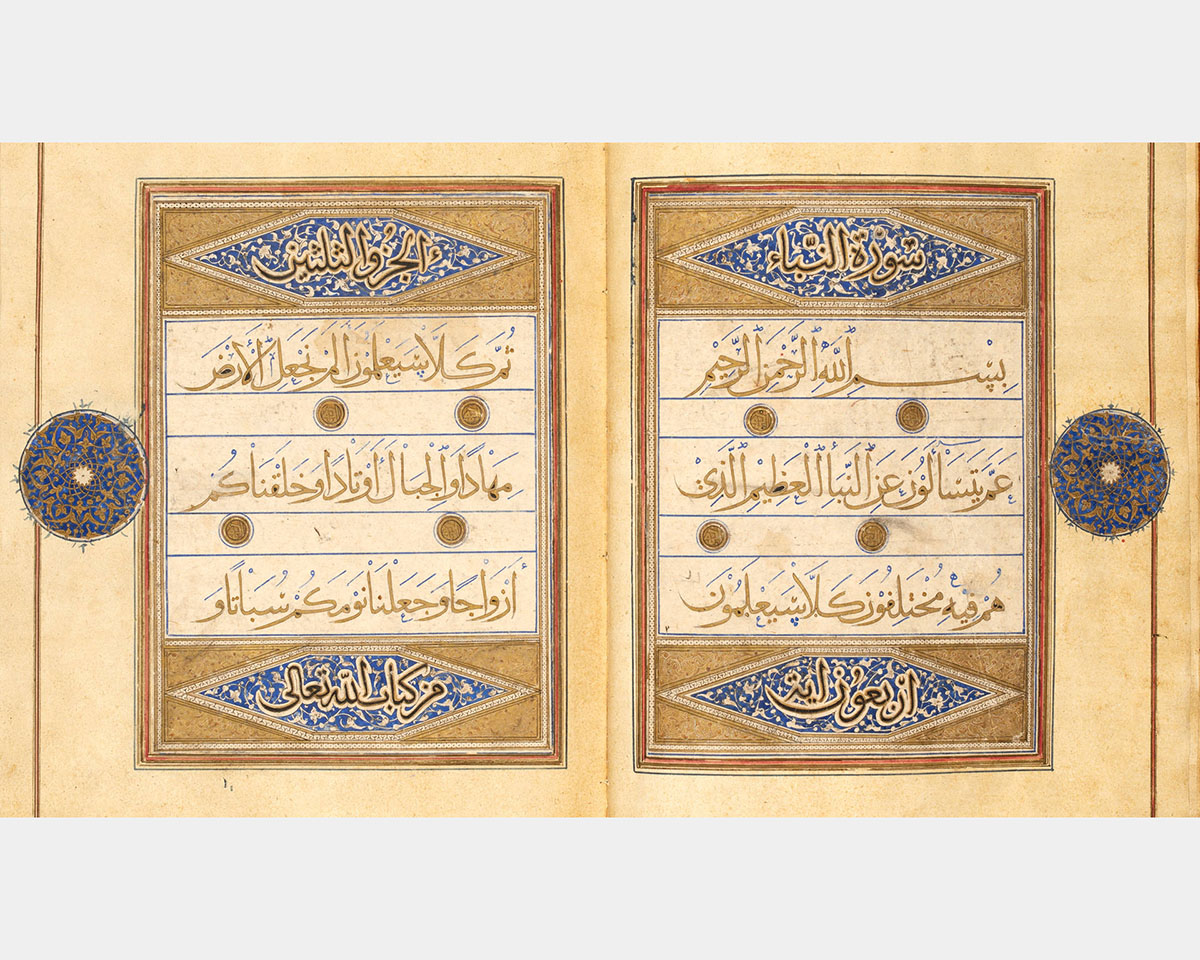 سورة النباء
بِسْمِ اللَّهِ الرَّحْمَنِ الرَّحِيمِ
عَمَّ يَتَسَاءَلُونَ عَنِ النَّبَأِ الْعَظِيمِ الَّذِي
هُمْ فِيهِ مُخْتَلِفُونَ كَلَّا سَيَعْلَمُونَ
اربعون اية
الجزو الثلثين
ثُمَّ كَلَّا سَيَعْلَمُونَ أَلَمْ نَجْعَلِ الْأَرْضَ
مِهَادًا وَالْجِبَالَ أَوْتَادًا وَخَلَقْنَاكُمْ
أَزْوَاجًا وَجَعَلْنَا نَوْمَكُمْ سُبَاتًا وَ
من كتاب الله تعالى